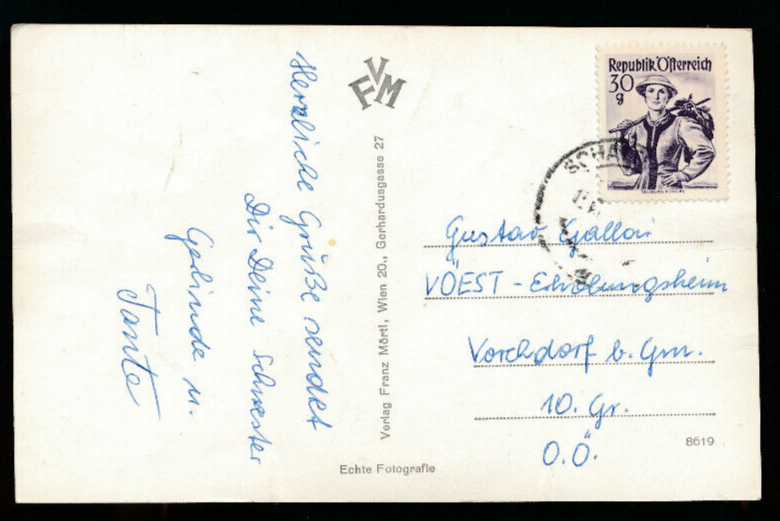 Herzliche Grüße sendet
Dir Deine Schwester
Gelinde u.
Tante
FVM
Verlag Franz Mörtl, Wien 20., Gerhardusgasse 27
Echte Fotografie
Republik Österreich
30
g
SCHA
Gustav Gallai
VÖEST - Erholungsheim
Vorchdorf b. Gm.
10. Gr.
O.Ö.
8619